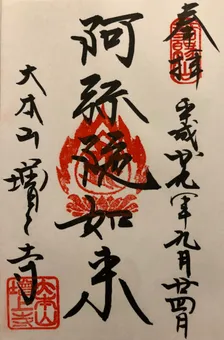 奉拝
平成廿九年九月廿四月
阿弥陀如来
大本山増上寺
大本山増上寺